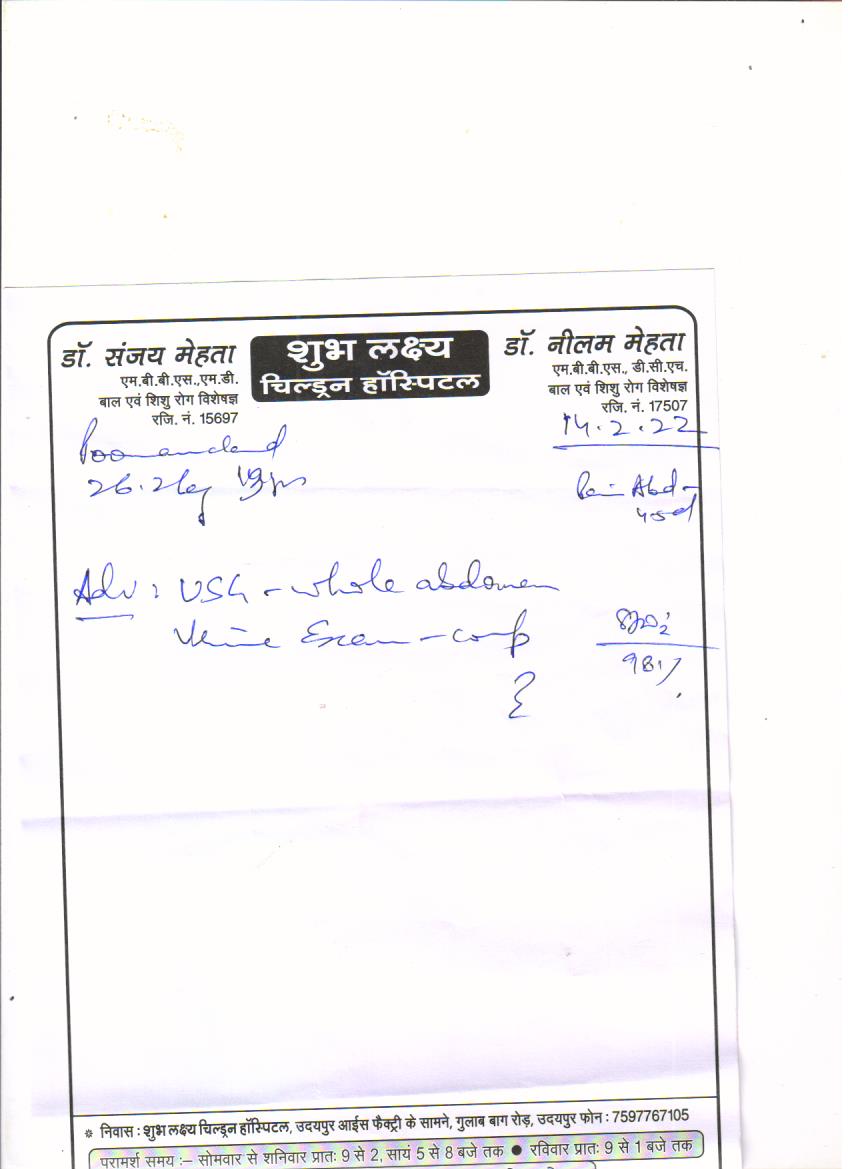 डॉ. संजय मेहता
एम.बी.बी.एस.,एम.डी.
बाल एवं शिशु रोग विशेषज्ञ
रजि. नं. 15697
शुभ लक्ष्य
चिल्ड्रन हॉस्पिटल
डॉ. नीलम मेहता
एम.बी.बी.एस., डी.सी.एच.
बाल एवं शिशु रोग विशेषज्ञ
रजि. नं. 17507
14.2.22
26.2kg
Pain Abd-
Adv: USG - whole abdomen
Urine Exam - comp
98%
* निवास : शुभ लक्ष्य चिल्ड्रन हॉस्पिटल, उदयपुर आईस फैक्ट्री के सामने, गुलाब बाग रोड़, उदयपुर फोन : 7597767105
परामर्श समय :– सोमवार से शनिवार प्रातः 9 से 2, सायं 5 से 8 बजे तक ● रविवार प्रातः 9 से 1 बजे तक